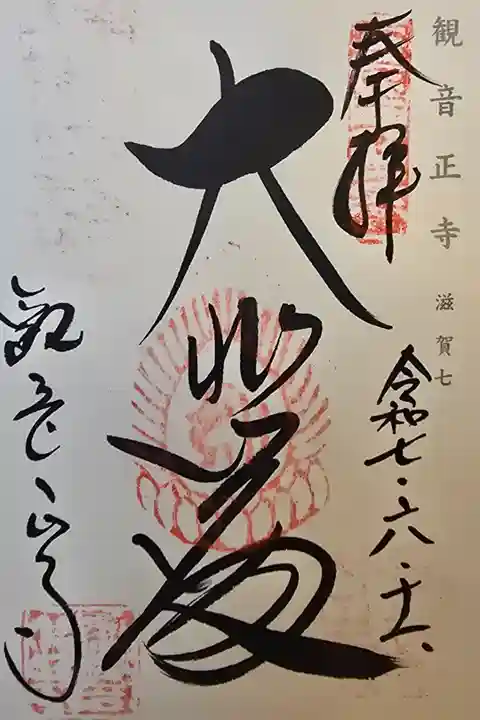 観音正寺 滋賀七
奉拝
令和七、六、十一、
大悲殿
観音正寺